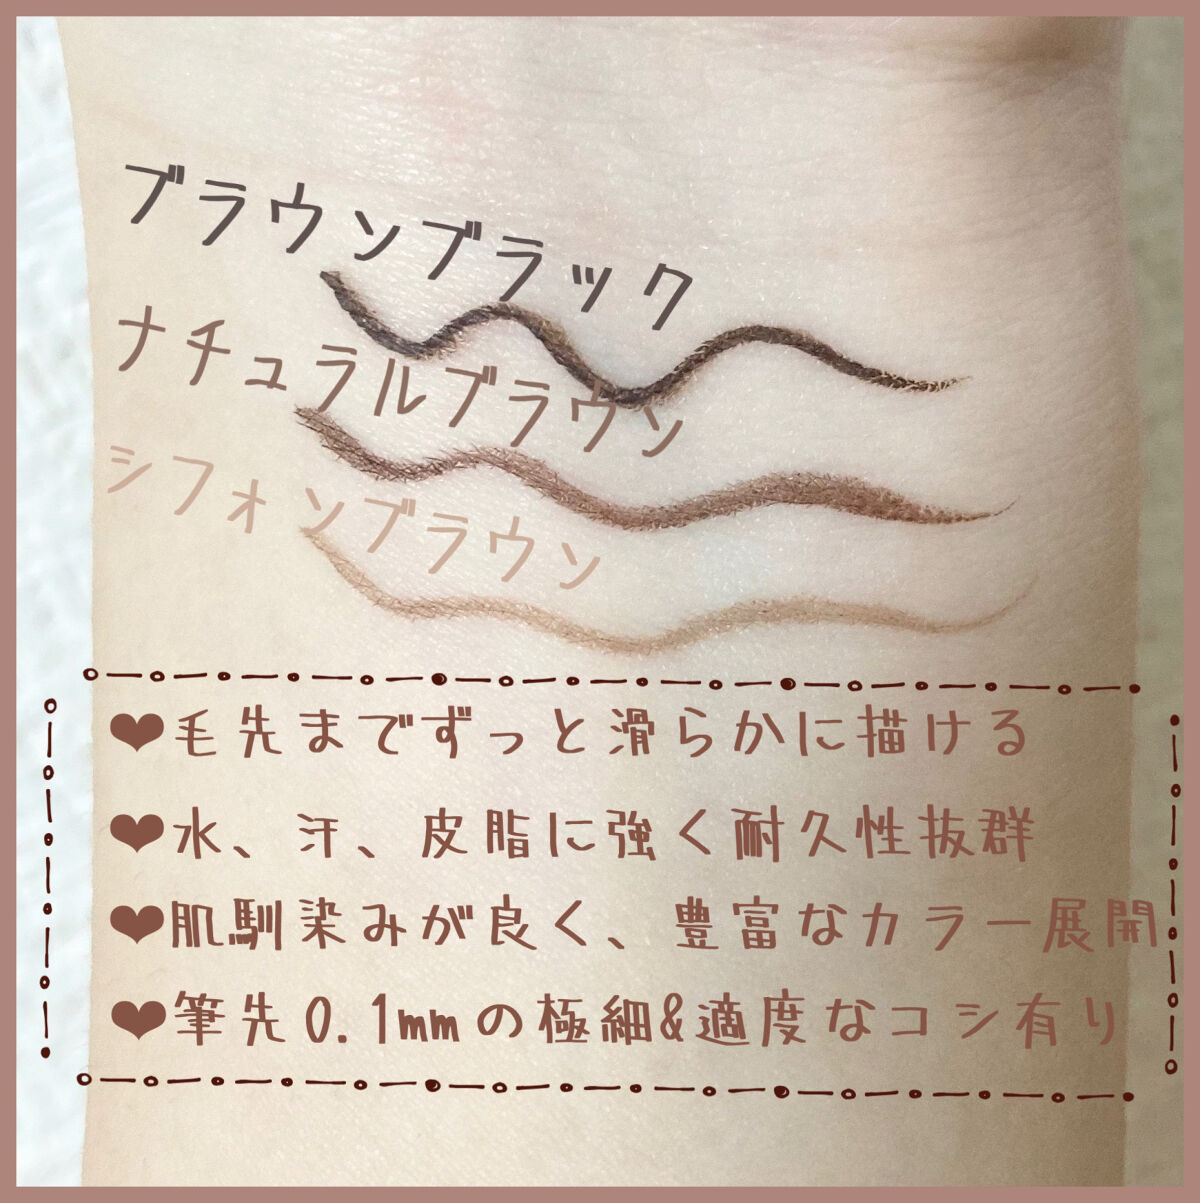 ブラウンブラック
ナチュラルブラウン
シフォンブラウン
❤毛先までずっと滑らかに描ける
❤水、汗、皮脂に強く耐久性抜群
❤肌馴染みが良く、豊富なカラー展開
❤筆先0.1mmの極細&適度なコシ有り